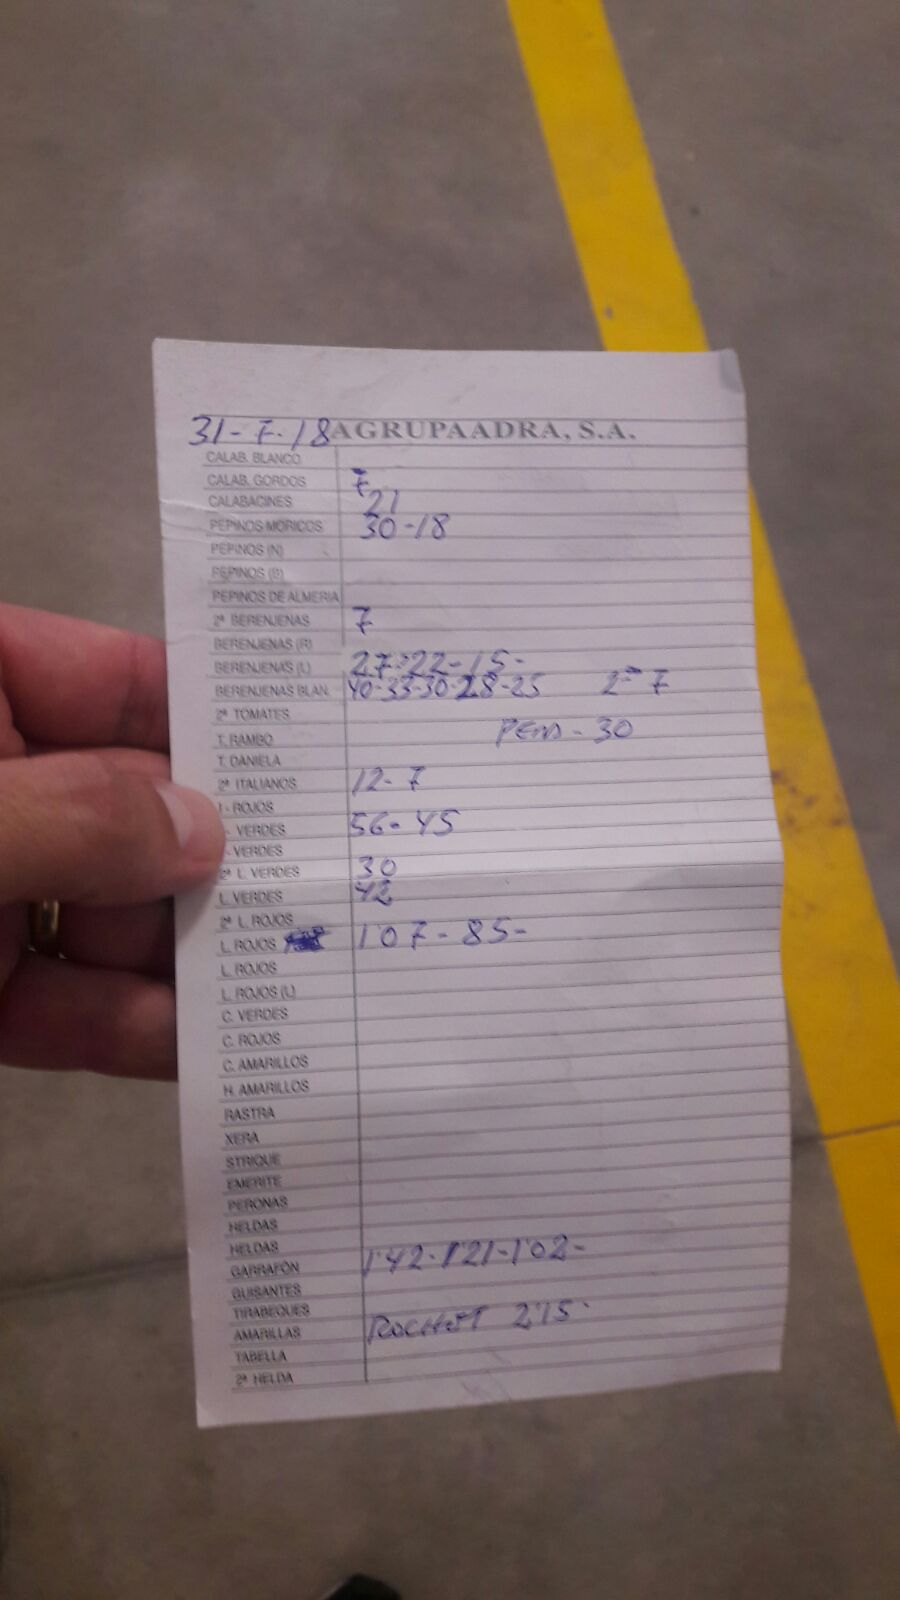 31-7-18 AGRUPAADRA, S.A.
CALAB. BLANCO
CALAB. GORDOS 7
CALABACINES 21
PEPINOS MORICOS 30-18
PEPINOS (N)
PEPINOS (B)
PEPINOS DE ALMERIA
2ª BERENJENAS 7
BERENJENAS (R)
BERENJENAS (L) 27-22-15-
BERENJENAS BLAN. 40-33-30-28-25 2ª 7
2ª TOMATES
T. RAMBO - 30
T. DANIELA
2ª ITALIANOS 12-7
I - ROJOS
- VERDES 56-45
- VERDES
2ª L. VERDES 30
L. VERDES 42
2ª L. ROJOS
L. ROJOS 1'07-85-
L. ROJOS
L. ROJOS (L)
C. VERDES
C. ROJOS
C. AMARILLOS
H. AMARILLOS
RASTRA
XERA
STRIQUE
EMERITE
PERONAS
HELDAS
HELDAS
GARRAFÓN 1'42-1'21-1'02-
GUISANTES
TIRABEQUES
AMARILLAS ROCHET 2'15
TABELLA
2ª HELDA